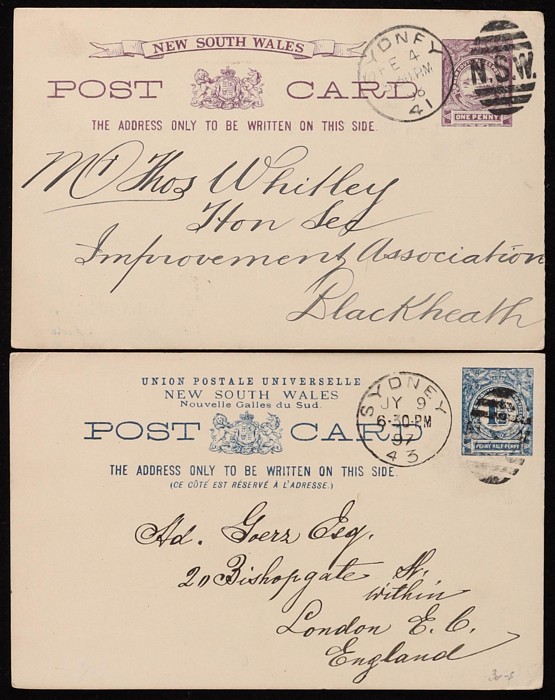 NEW SOUTH WALES
POST CARD
THE ADDRESS ONLY TO BE WRITTEN ON THIS SIDE.
SYDNEY
FE 4
PM
41
N.S.W.
ONE PENNY
Mr Thos Whitley
Hon Sec
Improvement Association
Blackheath
UNION POSTALE UNIVERSELLE
NEW SOUTH WALES
Nouvelle Galles du Sud.
POST CARD
THE ADDRESS ONLY TO BE WRITTEN ON THIS SIDE.
(CE CÔTÉ EST RÉSERVÉ À L'ADRESSE.)
SYDNEY
JY 9
6-30 PM
97
43
PENNY HALF PENNY
Ad. Goerz Esq.
20 Bishopgate St.
within
London E. C.
England